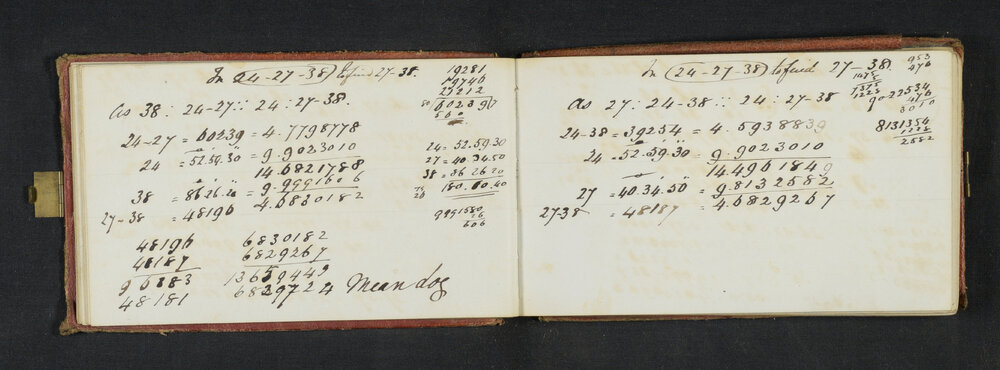 In (24-27-38) to find 27-38.
As 38 : 24-27 :: 24 : 27-38.
24-27 = 60239 = 4.7798778
24 = 52.59.30 = 9.9023010
14.6821788
38 = 86.26.20 = 9.9991606
27-38 = 48196 = 4.6830182
48196 6830182
48187 6829267
96383 13659449
48181 6829724 Mean log
19281
27212
60239
24 = 52.59.30
27 = 40.34.50
38 = 86 26 20
180.00.40
9991580
26
606
In (24-27-38) to find 27-38.
As 27 : 24-38 :: 24 : 27-38
24-38 = 39254 = 4.5938839
24 = 52.59.30 = 9.9023010
14.4961849
27 = 40.34.50 = 9.8132582
27-38 = 48187 = 4.6829267
953
976
8131354
2582